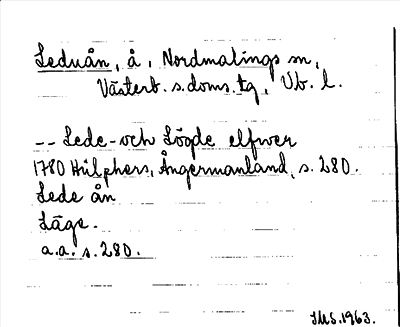 Leduån, å, Nordmalings sn,
Västerb. s. doms. tg, Vb. l.
-- Lede- och Lögde elfwer
1780 Hülphers, Ångermanland, s. 280.
Lede ån
Läge.
a.a. s. 280.
IMS. 1963.